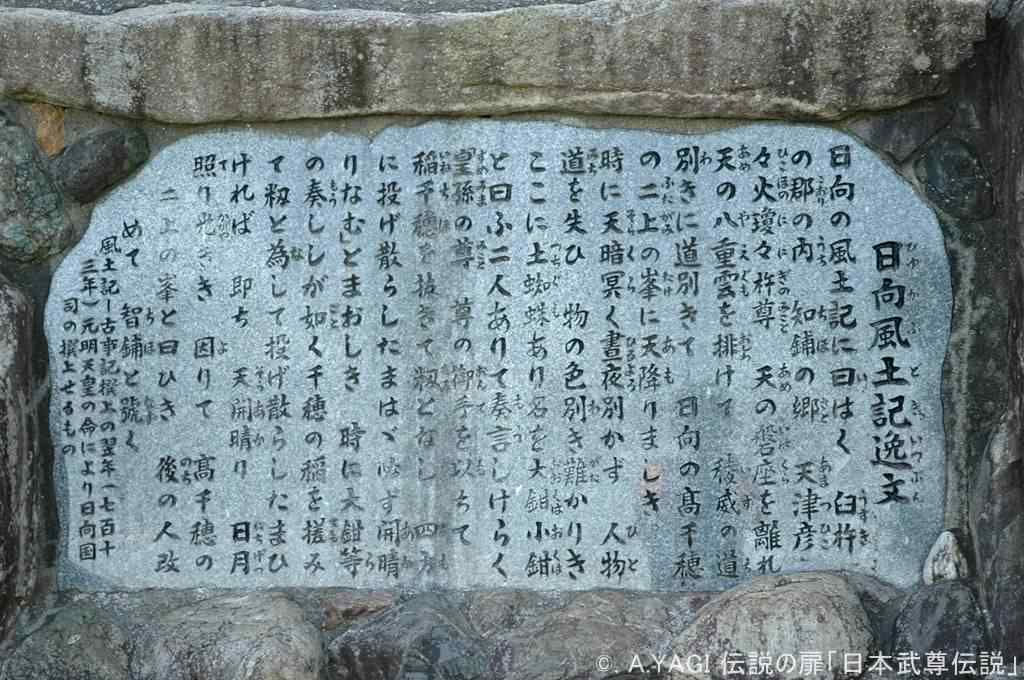 日向風土記逸文
日向の風土記に曰はく 臼杵
の郡の内 知鋪の郷 天津彦
々火瓊々杵尊 天の磐座を離れ
天の八重雲を排けて 稜威の道
別きに道別きて 日向の高千穂
の二上の峯に天降りましき
時に天暗冥く晝夜別かず 人物
道を失ひ 物の色別き難かりき
ここに土蜘蛛あり名を大鉗小鉗
と曰ふ二人ありて奏言しけらく
皇孫の尊 尊の御手を以ちて
稲千穂を抜きて籾となし 四方
に投げ散らしたまはゞ 必ず開晴
りなむとまおしき 時に大鉗等
の奏ししが如く千穂の稲を搓み
て籾と為して投げ散らしたまひ
ければ 即ち 天開晴り 日月
照り光きき 因りて 高千穂の
二上の峯と曰ひき 後の人改
めて 智鋪と號く
風土記ー古事記撰上の翌年(七百十
三年)元明天皇の命により日向国
司の撰上せるもの
© A.YAGI 伝説の扉「日本武尊伝説」